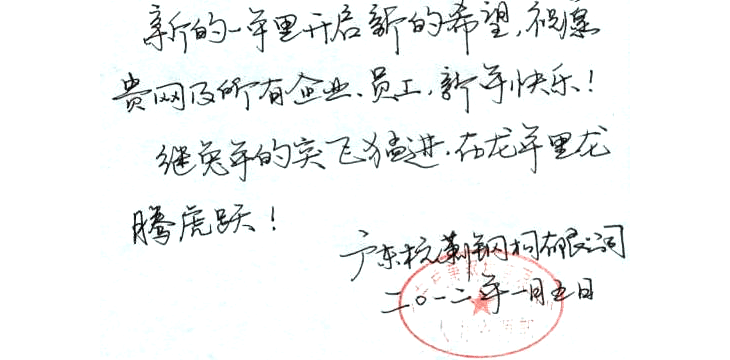 新的一年里开启新的希望,祝愿
贵网及所有企业、员工,新年快乐!
继兔年的突飞猛进,在龙年里龙
腾虎跃!
广东杭萧钢构有限公司
二〇一二年一月五日